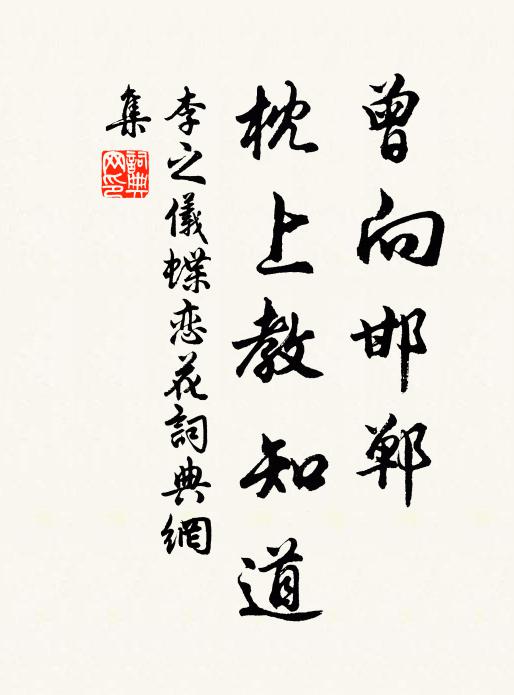 曾向邯鄲
枕上教知道
李之儀蝶恋花詞典網
集
詞典
网印